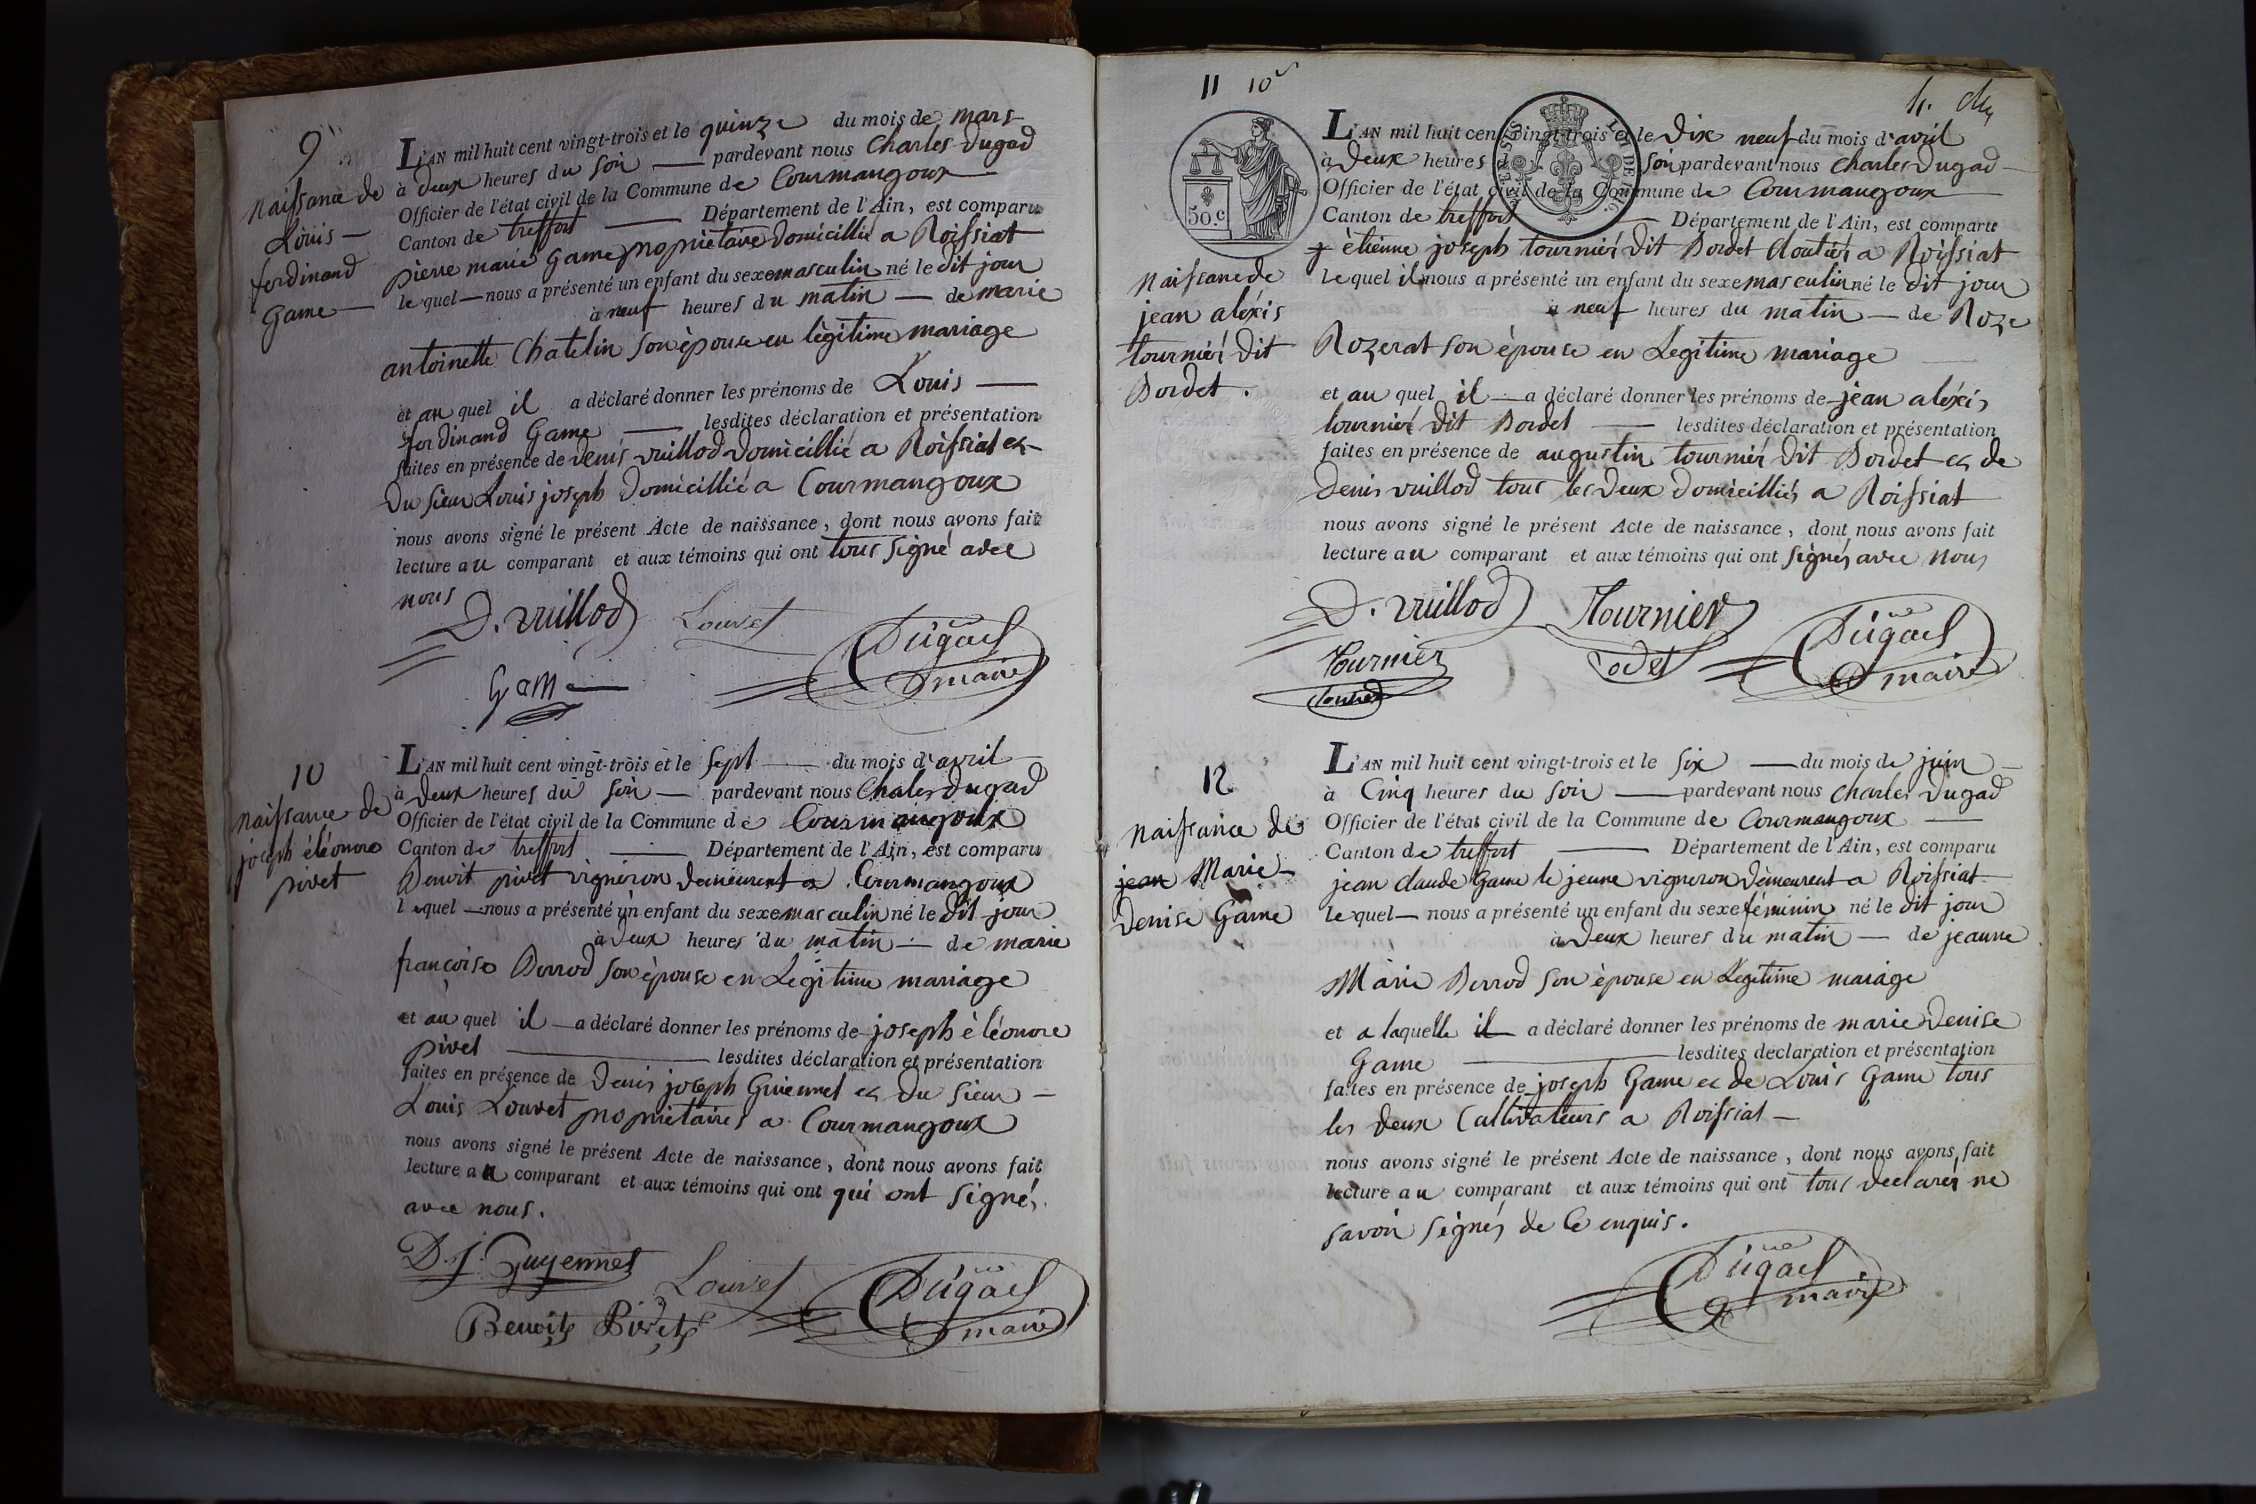 9
Naissance de
Louis
ferdinand
Game
L'AN mil huit cent vingt-trois et le quinze du mois de mars
à deux heures du soir pardevant nous Charles Dugad
Officier de l'état civil de la Commune de Courmangoux
Canton de treffort Département de l'Ain, est comparu
pierre marie Game propriètaire Domicillié a Roissiat
lequel nous a présenté un enfant du sexe masculin né le dit jour
à neuf heures du matin de marie
antoinette Chatelin son èpouse en lègitime mariage
et au quel il a déclaré donner les prénoms de Louis
ferdinand Game lesdites déclaration et présentation
faites en présence de denis vuillod domicillié a Roissiat et
du sieur Louis joseph domicillié a Courmangoux
nous avons signé le présent Acte de naissance, dont nous avons fait
lecture au comparant et aux témoins qui ont tous signé avec
nous
D. vuillod Louvet Dugad
Game maire
10
Naissance de
joseph èléonore
pivet
L'AN mil huit cent vingt-trois et le sept du mois d'avril
à deux heures du soir pardevant nous Chales Dugad
Officier de l'état civil de la Commune de Courmangoux
Canton de treffort Département de l'Ain, est comparu
Benoit pivet vigneron demeurent a Courmangoux
lequel nous a présenté un enfant du sexe masculin né le dit jour
à deux heures du matin de marie
françoise Berrod son èpouse en Legitime mariage
et au quel il a déclaré donner les prénoms de joseph èléonore
pivet lesdites déclaration et présentation
faites en présence de Denis joseph Guiennet et du sieur
Louis Louvet propriètaires a Courmangoux
nous avons signé le présent Acte de naissance, dont nous avons fait
lecture au comparant et aux témoins qui ont qui ont signés
avec nous.
D. J. Guyennet Louvet Dugad
Benoit Pivet maire
11 10
50 c.
Naissance de
jean aléxis
tournier dit
Bordet.
L'AN mil huit cent vingt-trois et le Dix neuf du mois d'avril
à Deux heures du soir pardevant nous Charles Dugad
Officier de l'état civil de la Commune de Courmangoux
Canton de treffort Département de l'Ain, est comparu
ètienne joseph tournier dit Bordet cloutier a Roissiat
lequel il nous a présenté un enfant du sexe masculin né le dit jour
à neuf heures du matin de Roze
Rozerat son épouse en Legitime mariage
et au quel il a déclaré donner les prénoms de jean aléxis
tournier dit Bordet lesdites déclaration et présentation
faites en présence de augustin tournier dit Bordet et de
denis vuillod tous les deux domicilliés a Roissiat
nous avons signé le présent Acte de naissance, dont nous avons fait
lecture au comparant et aux témoins qui ont signés avec nous
D. vuillod Tournier Dugad
Tournier maire
12
Naissance de
jean Marie
Denise Game
L'AN mil huit cent vingt-trois et le six du mois de juin
à Cinq heures du soir pardevant nous Charles Dugad
Officier de l'état civil de la Commune de Courmangoux
Canton de treffort Département de l'Ain, est comparu
jean claude Game le jeune vigneron dèmeurent a Roissiat
lequel nous a présenté un enfant du sexe féminin né le dit jour
à deux heures du matin de jeanne
Marie Berrod son èpouse en Legitime mariage
et a laquelle il a déclaré donner les prénoms de marie Denise
Game lesdites declaration et présentation
faites en présence de joseph Game et de Louis Game tous
les deux Cultivateurs a Roissiat
nous avons signé le présent Acte de naissance, dont nous avons fait
lecture au comparant et aux témoins qui ont tous declarés ne
savoir signés de Ce enquis.
Dugad
maire